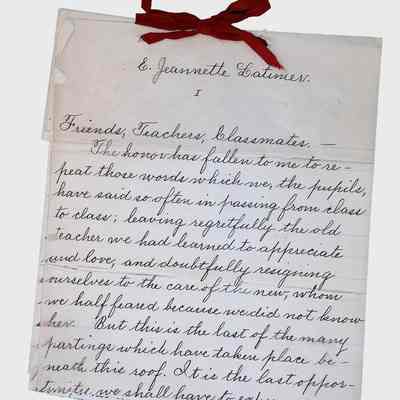 E. Jeannette Latimer.
I
Friends, Teachers, Classmates. —
The honor has fallen to me to re-
peat those words which we, the pupils,
have said so often in passing from class
to class; leaving regretfully the old
teacher we had learned to appreciate
and love, and doubtfully resigning
ourselves to the care of the new, whom
we half feared because we did not know
her. But this is the last of the many
partings which have taken place be-
neath this roof. It is the last oppor-
tunity we shall have to